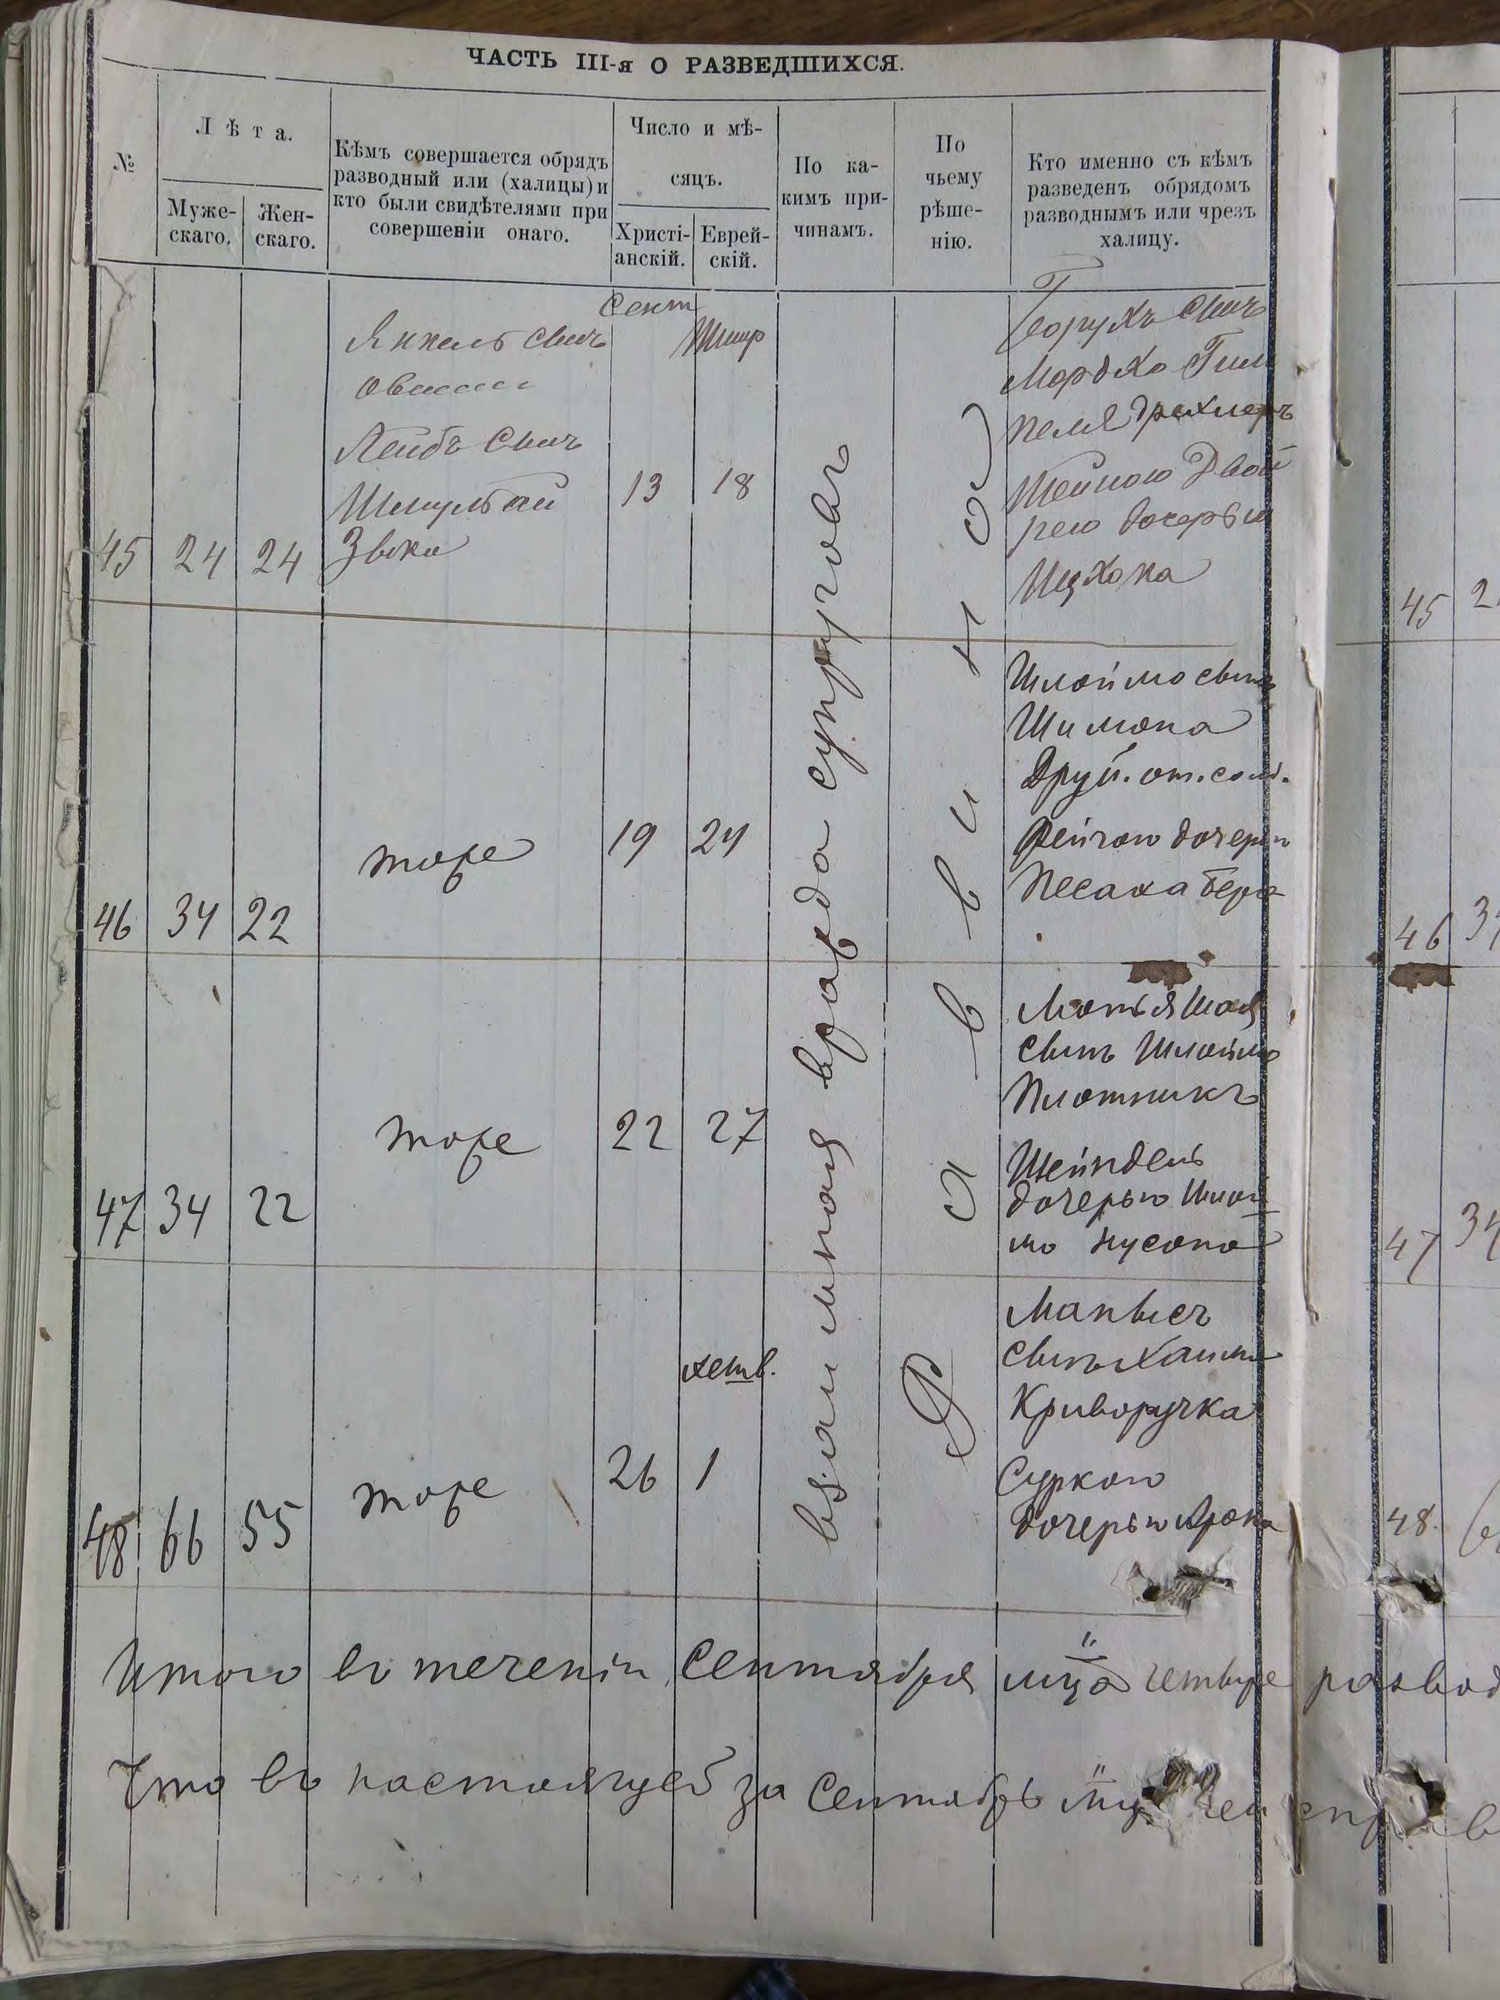 ЧАСТЬ III-я О РАЗВЕДШИХСЯ.
№
Лѣта.
Муже-
скаго.
Жен-
скаго.
Кѣмъ совершается обрядъ
разводный или (халицы) и
кто были свидѣтелями при
совершеніи онаго.
Число и мѣ-
сяцъ.
Христі-
анскій.
Еврей-
скій.
По ка-
кимъ при-
чинамъ.
По
чьему
рѣше-
нію.
Кто именно съ кѣмъ
разведенъ обрядомъ
разводнымъ или чрезъ
халицу.
45
24
24
Янкель
Лейбъ
Сент
13
18
взаимная вражда супруговъ
Борухъ
Мордко
Шейною Двой
рею дочерью
Ицхока
46
34
22
тоже
19
24
Шлоймо сынъ
Шимона
Друй. от. солд.
Рейзою дочерью
Песаха Бера
47
34
22
тоже
22
27
Мотья Шая
сынъ Шлоймо
Плотникъ
Шейндель
дочерью Шлой
мо Нусона
48
66
55
тоже
26
хешв.
1
Манысъ
сынъ Хаима
Криворучка
Суркою
дочерью Арона
Итого въ теченіи Сентября мца четыре развод
Что въ настоящей за Сентябрь
45
46
47
34
48